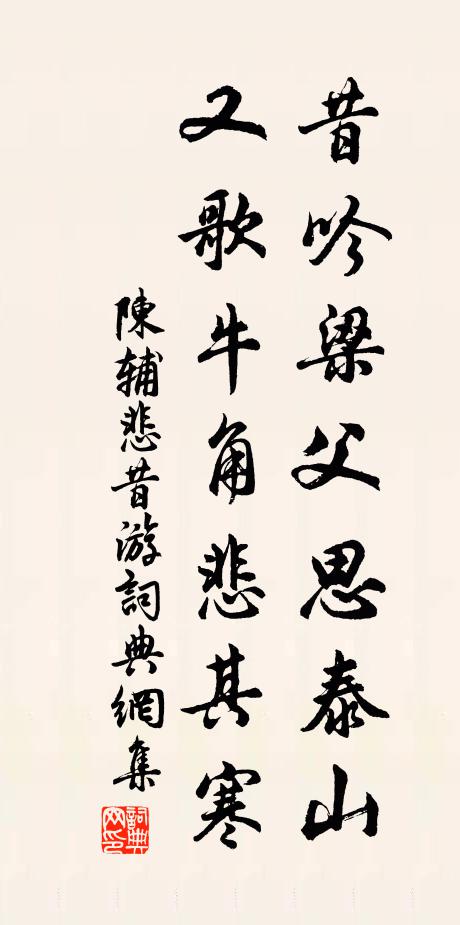 昔吟梁父思泰山
又歌牛角悲其寒
陳辅悲昔游詞典網集
詞典網印